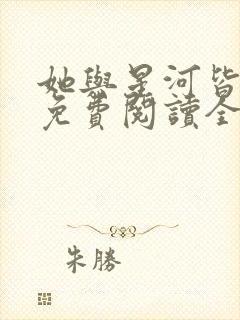 她與星河皆
免費閱讀全
朱勝